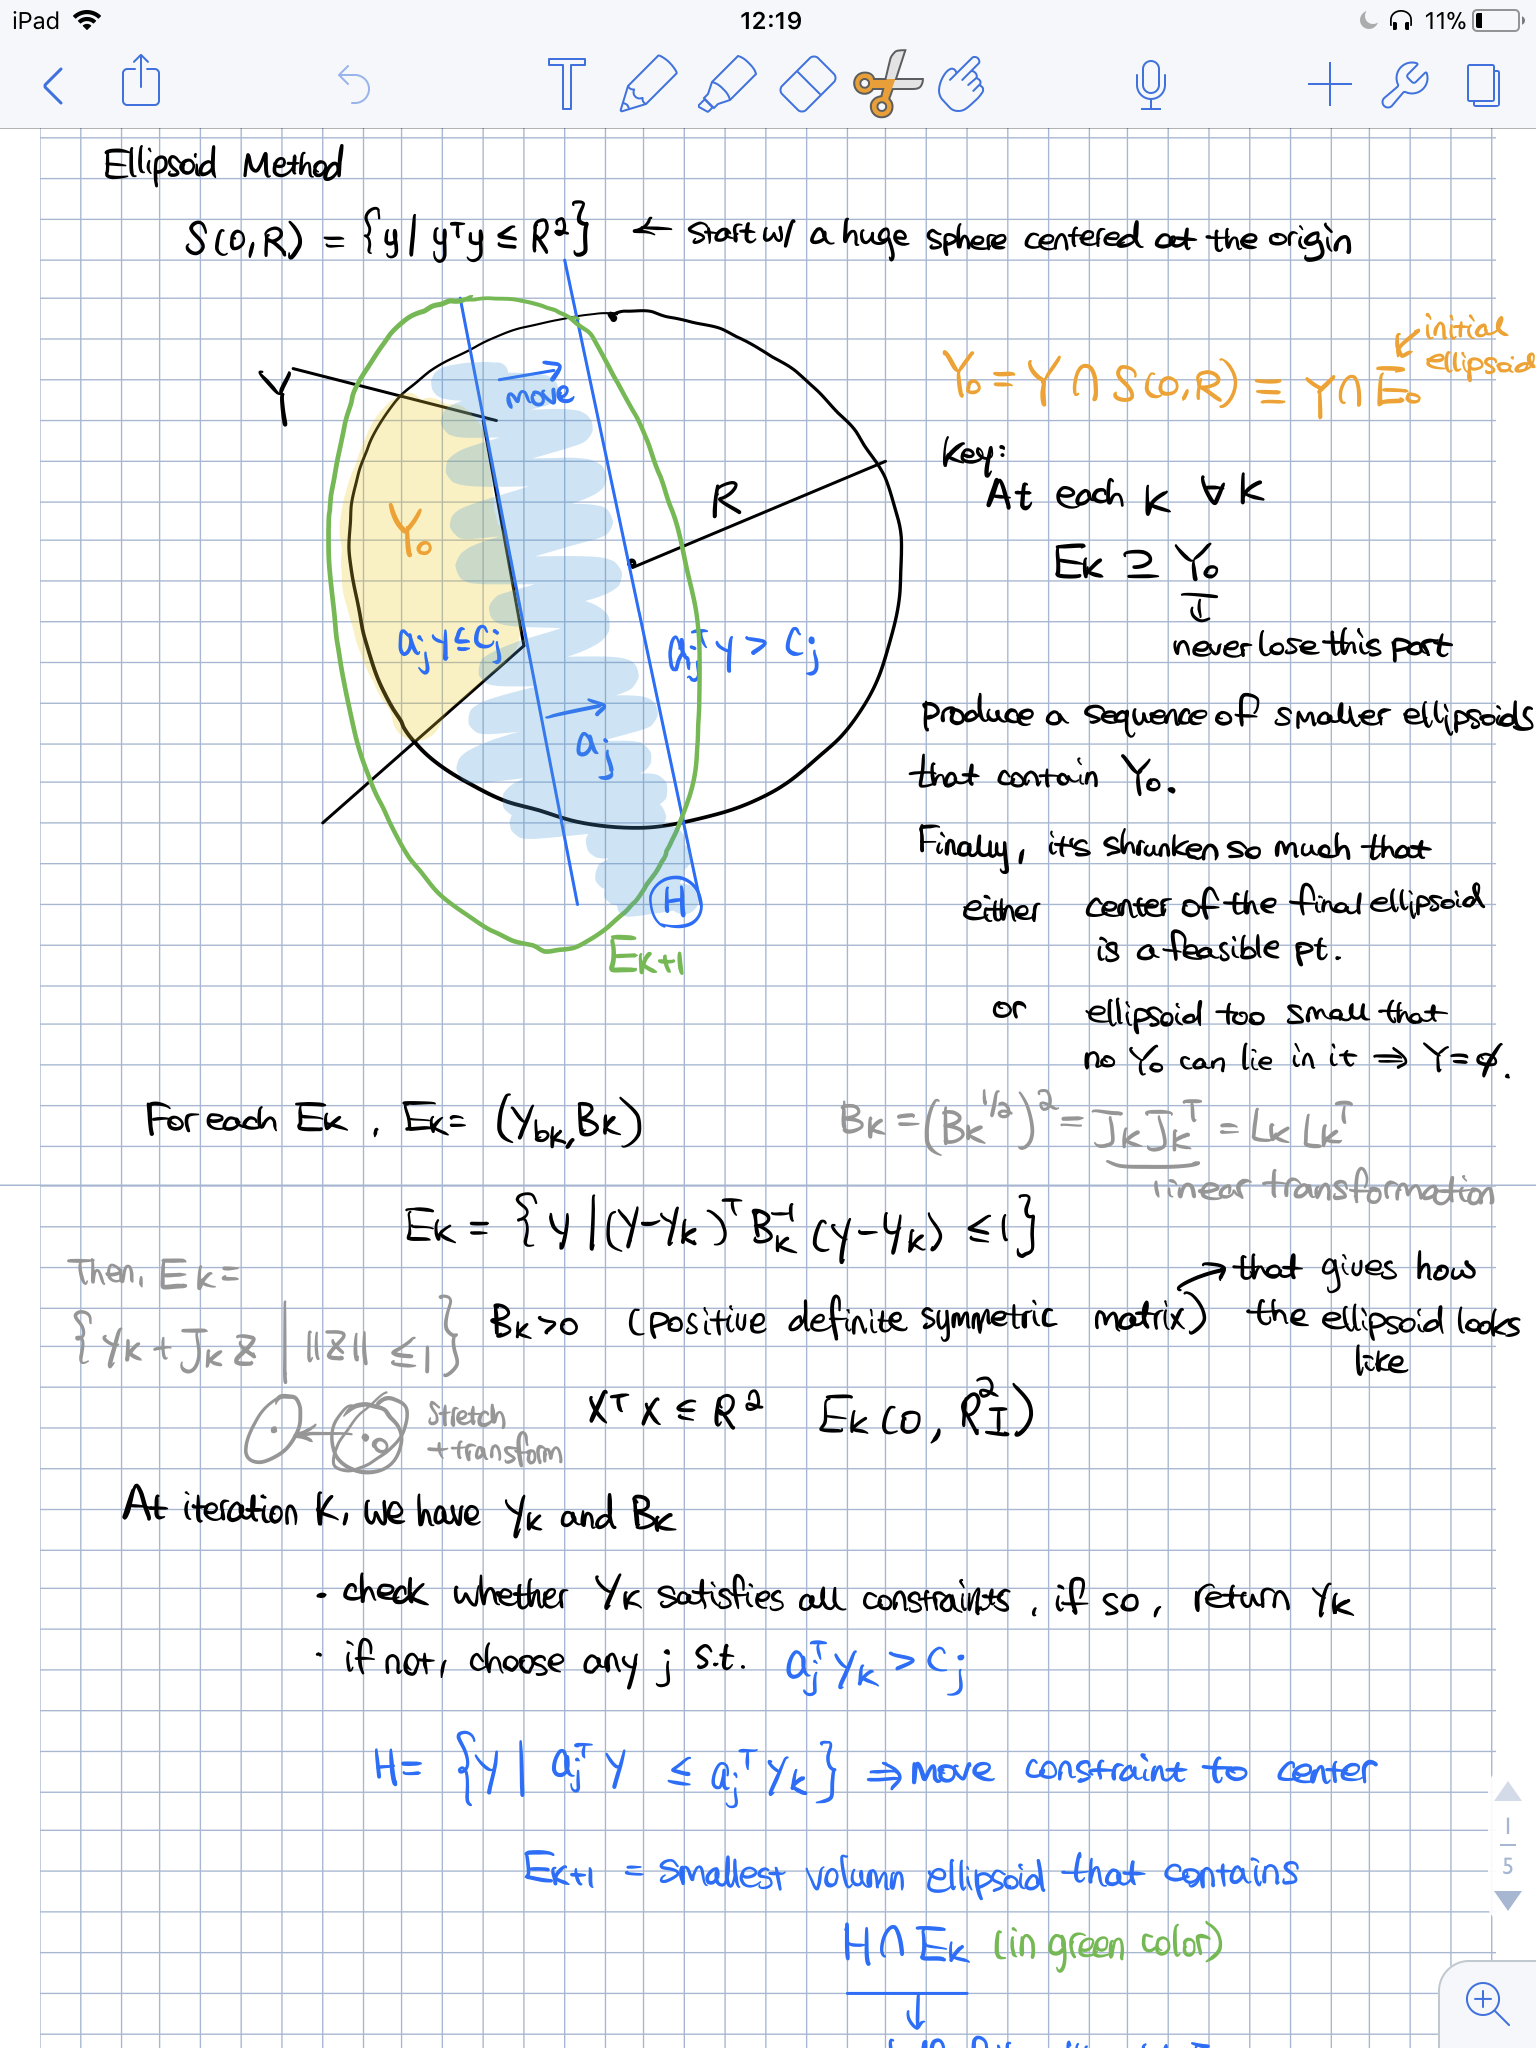 iPad
12:19
11%
Ellipsoid Method
S(0,R) = {y | yᵀy ≤ R²} ← start w/ a huge sphere centered at the origin
initial
ellipsoid
Y₀ = Y ∩ S(0,R) ≡ Y ∩ E₀
Y
move
R
Y₀
aⱼy ≤ cⱼ
aⱼᵀy > cⱼ
aⱼ
H
Eₖ₊₁
Key:
At each k ∀ k
Eₖ ⊇ Y₀
↓
never lose this part
produce a sequence of smaller ellipsoids
that contain Y₀.
Finally, it's shrunken so much that
either center of the final ellipsoid
is a feasible pt.
or ellipsoid too small that
no Y₀ can lie in it ⇒ Y = ∅.
For each Eₖ, Eₖ = (y_bk, Bₖ)
Bₖ = (Bₖ^1/2)² = JₖJₖᵀ = LₖLₖᵀ
linear transformation
Eₖ = {y | (y-yₖ)ᵀ Bₖ⁻¹ (y-yₖ) ≤ 1}
Then, Eₖ =
{yₖ + Jₖ z | ||z|| ≤ 1}
Bₖ > 0 (positive definite symmetric matrix) → that gives how
the ellipsoid looks
like
stretch
+transform
xᵀx ≤ R² Eₖ(0, R²I)
At iteration k, we have yₖ and Bₖ
· check whether yₖ satisfies all constraints, if so, return yₖ
· if not, choose any j s.t. aⱼᵀyₖ > cⱼ
H = {y | aⱼᵀy ≤ aⱼᵀyₖ} ⇒ move constraint to center
Eₖ₊₁ = smallest volumn ellipsoid that contains
H ∩ Eₖ (in green color)
↓
1
5